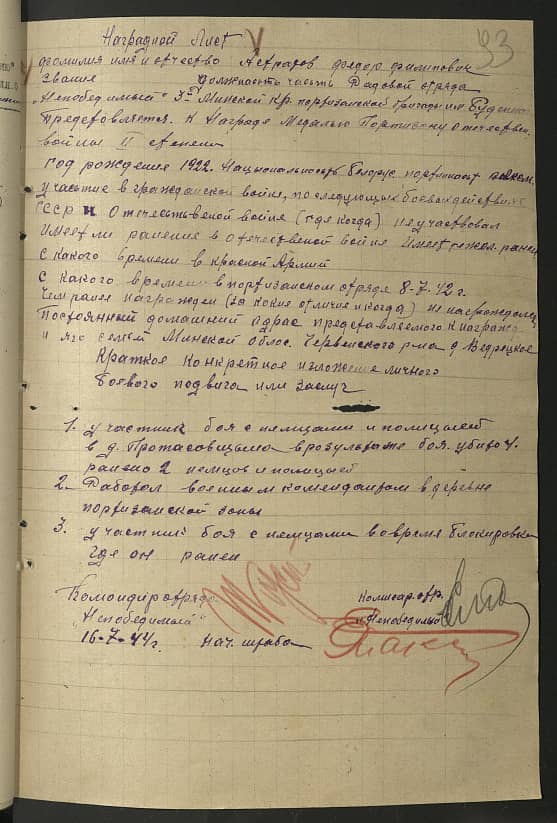 93
Наградной Лист
фамилия имя и отчество Астратов Федор Филипович
Звание должность часть Рядовой отряда
"Непобедимый" 3ей Минской Кр. портизанской бригады им Буденно
Предстовляется. К Награде Медалью Портизану Отечествен.
войны II степени
год рождения 1922. Национальность белорус портийность
участие в гражданской войне, последующих боевых действиях
СССР и Отечественой войне (где когда) неучаствовал
Имеет ли ранения в отечественой войне имеет тежол. ранен
с какого времени в Красной Армий
с какого времени в портизанском отряде 8-7-42 г.
Чем ранее награжден (за какие отличие и когда) не награждалец
Постоянный домашний адрас предстовляемого к награжд
и яго семьи Минской облос. Червенского р-на д Ведрецкое
Краткое конкретное изложение личного
боевого подвига или заслуг
1. участник боя с немцами и полицией
в д. Протасовщина врозультате боя. убито 4.
ранено 2 немцов и полицаей
2. Работал военным комендантом в деревне
портизанской зоны
3. участник боя с немцами вовремя блокировки
где он ранен
Командир отряда
"Непобедимый"
Комисар. отр.
"Непобедимый"
16-7-44г. Нач. штаба